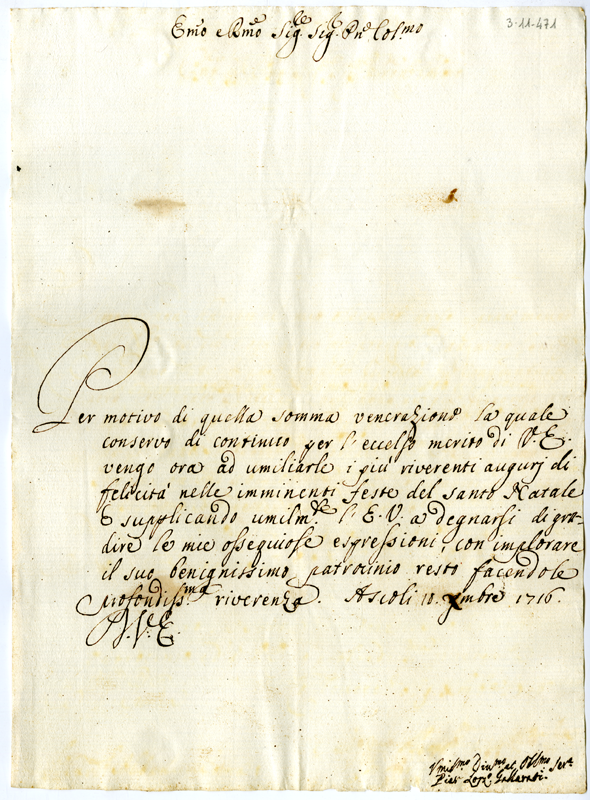 Em̃o e Rm̃o Sig.re Sig.r Prõn Col.mo
3-11-471
Per motivo di quella somma venerazione la quale
conservo di continuo per l'eccelso merito di V.E.
vengo ora ad umiliarle i più riverenti augurj di
felicità nelle imminenti feste del santo Natale
E supplicando umilm.te l'E.V. a degnarsi di gra-
dire le mie ossequiose espressioni, con implorare
il suo benignissimo patrocinio resto facendole
profondiss.ma riverenza. Ascoli 10. Xmbre 1716.
D. V.E.
Vmis.mo Diu.mo et Obl.mo Ser.e
Pier